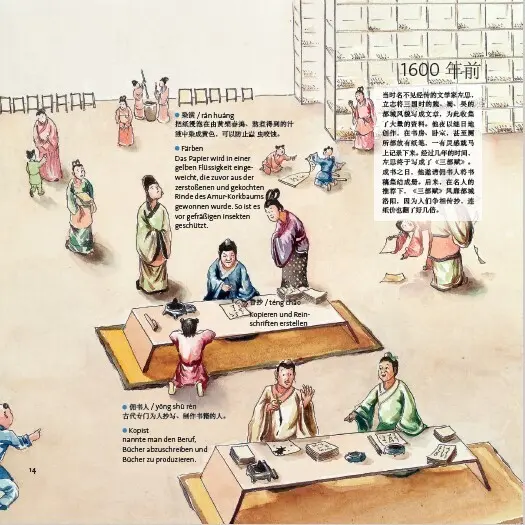 1600 年前
当时名不见经传的文学家左思,
立志将三国时的魏、蜀、吴的
都城风貌写成文章, 为此收集
了大量的资料。他夜以继日地
创作, 在书房、卧室、甚至厕
所都放有纸笔, 一有灵感就马
上记录下来。经过几年的时间,
左思终于写成了《三都赋》。
成书之日, 他邀请佣书人将书
稿集结成册。后来, 在名人的
推荐下, 《三都赋》风靡都城
洛阳, 因为人们争相传抄, 连
纸价也翻了好几倍。
染潢 / rǎn huáng
把纸浸泡在由黄檗春捣、熬煮得到的汁
液中染成黄色, 可以防止蠹虫蛀蚀。
Färben
Das Papier wird in einer
gelben Flüssigkeit einge-
weicht, die zuvor aus der
zerstoßenen und gekochten
Rinde des Amur-Korkbaums
gewonnen wurde. So ist es
vor gefräßigen Insekten
geschützt.
誊抄 / téng chāo
Kopieren und Rein-
schriften erstellen
佣书人 / yōng shū rén
古代专门为人抄写、制作书籍的人。
Kopist
nannte man den Beruf,
Bücher abzuschreiben und
Bücher zu produzieren.
14